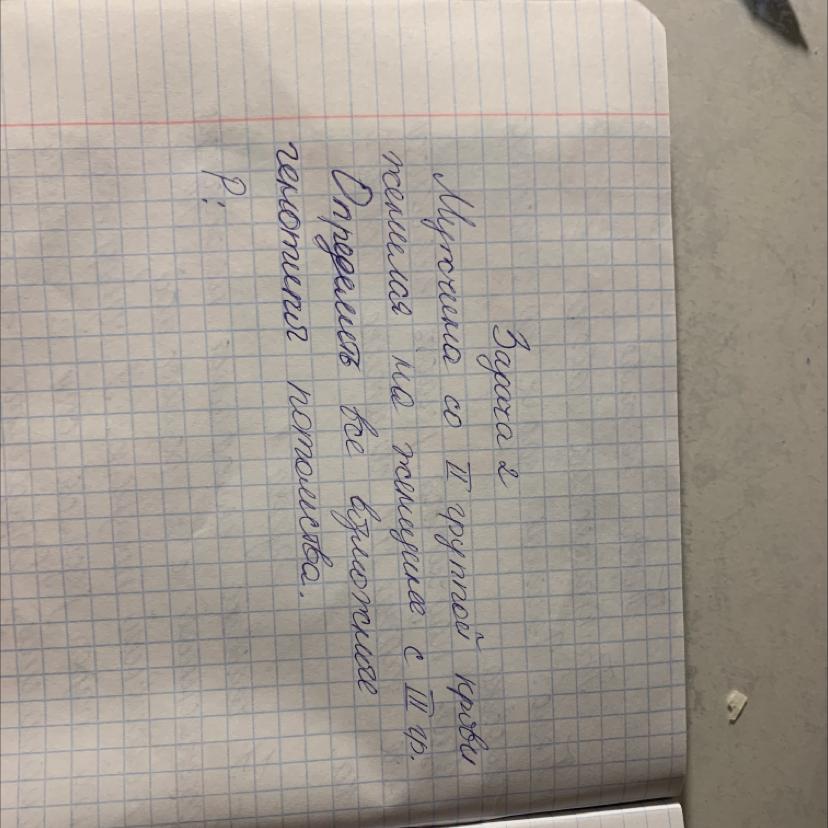 Задача 2
Мужчина со II группой крови
женился на женщине с III гр.
Определить все возможные
генотипы потомства.
P: